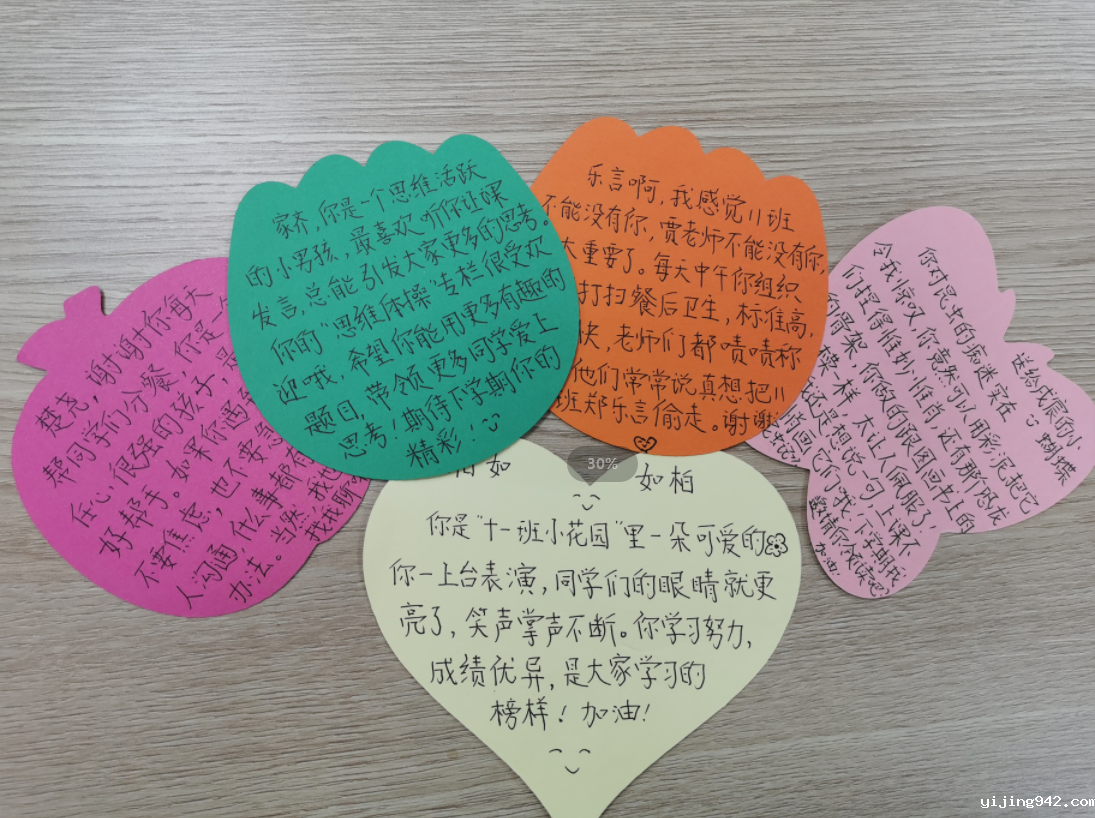 楚尧，谢谢你每天
帮同学们分餐，你是一
任心很强的孩子，是
好帮手。如果你遇到
不要焦虑，也不要急
人沟通，什么事都有
办法。当然，我也
找我聊
家齐，你是一个思维活跃
的小男孩，最喜欢听你让课
发言，总能引发大家更多的思考。
你的“思维体操”专栏很受欢
迎哦，希望你能用更多有趣的
题目，带领更多同学爱上
思考！期待下学期你的
精彩！
乐言啊，我感觉11班
不能没有你，贾老师不能没有你，
太重要了。每天中午你组织
打扫餐后卫生，标准高，
快，老师们都啧啧称
他们常常说真想把11
班郑乐言偷走。谢谢
30%
如
如柏
你是“十一班小花园”里一朵可爱的
你一上台表演，同学们的眼睛就更
亮了，笑声掌声不断。你学习努力，
成绩优异，是大家学习的
榜样！加油！
送给成震的小蝴蝶
你对昆虫的痴迷实在
令我惊叹，你竟然可以用彩泥把它
们捏得惟妙惟肖，还有那个恐龙
骨架，你做的跟图画书上的
一模一样，太让人佩服了，
还是想说一句，上课不
画它们了哦，下学期我
邀请你领读吧，
加油！
yijing942.com